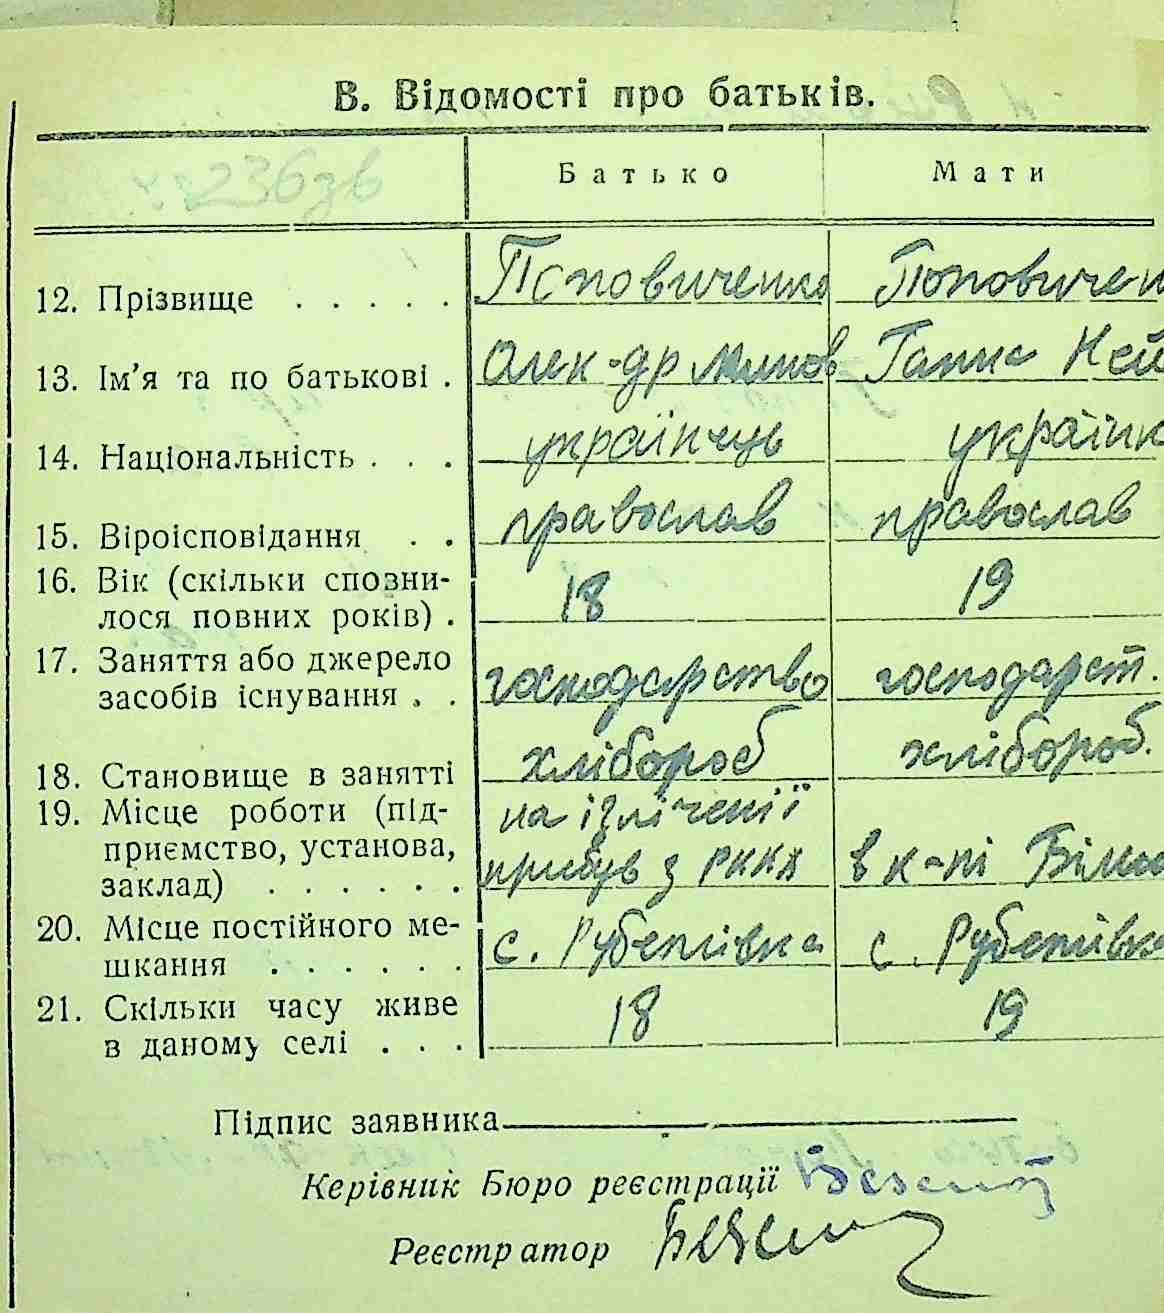 В. Відомості про батьків.
236зв
Батько Мати
12. Прізвище . . . . . Поповиченко Поповичен
13. Ім’я та по батькові . Олек-др Ганна
14. Національність . . . українець українк
15. Віроісповідання . . православ православ
16. Вік (скільки спозни-
лося повних років) . 18 19
17. Заняття або джерело
засобів існування . . господарство господарст.
18. Становище в занятті хлібороб хлібороб.
19. Місце роботи (під- на
приємство, установа, прибув з РККА в к-пі
заклад) . . . . . .
20. Місце постійного ме- с. Рубетівка с. Рубетівка
шкання . . . . . .
21. Скільки часу живе 18 19
в даному селі . . .
Підпис заявника
Керівник Бюро реєстрації
Реєстратор